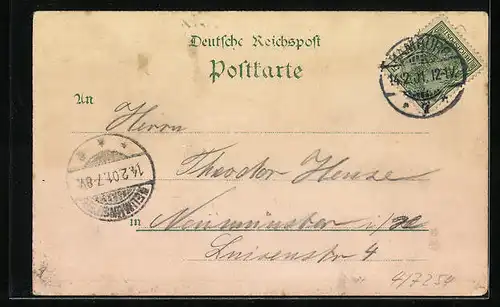 Deutsche Reichspost
Postkarte
An
HAMBURG
14.2.01. 12-1V.
* 7 *
Herrn
Theodor Hense
14.2.01. 7-8V.
in Neumünster i/H
Luisenstr 4
4/7254